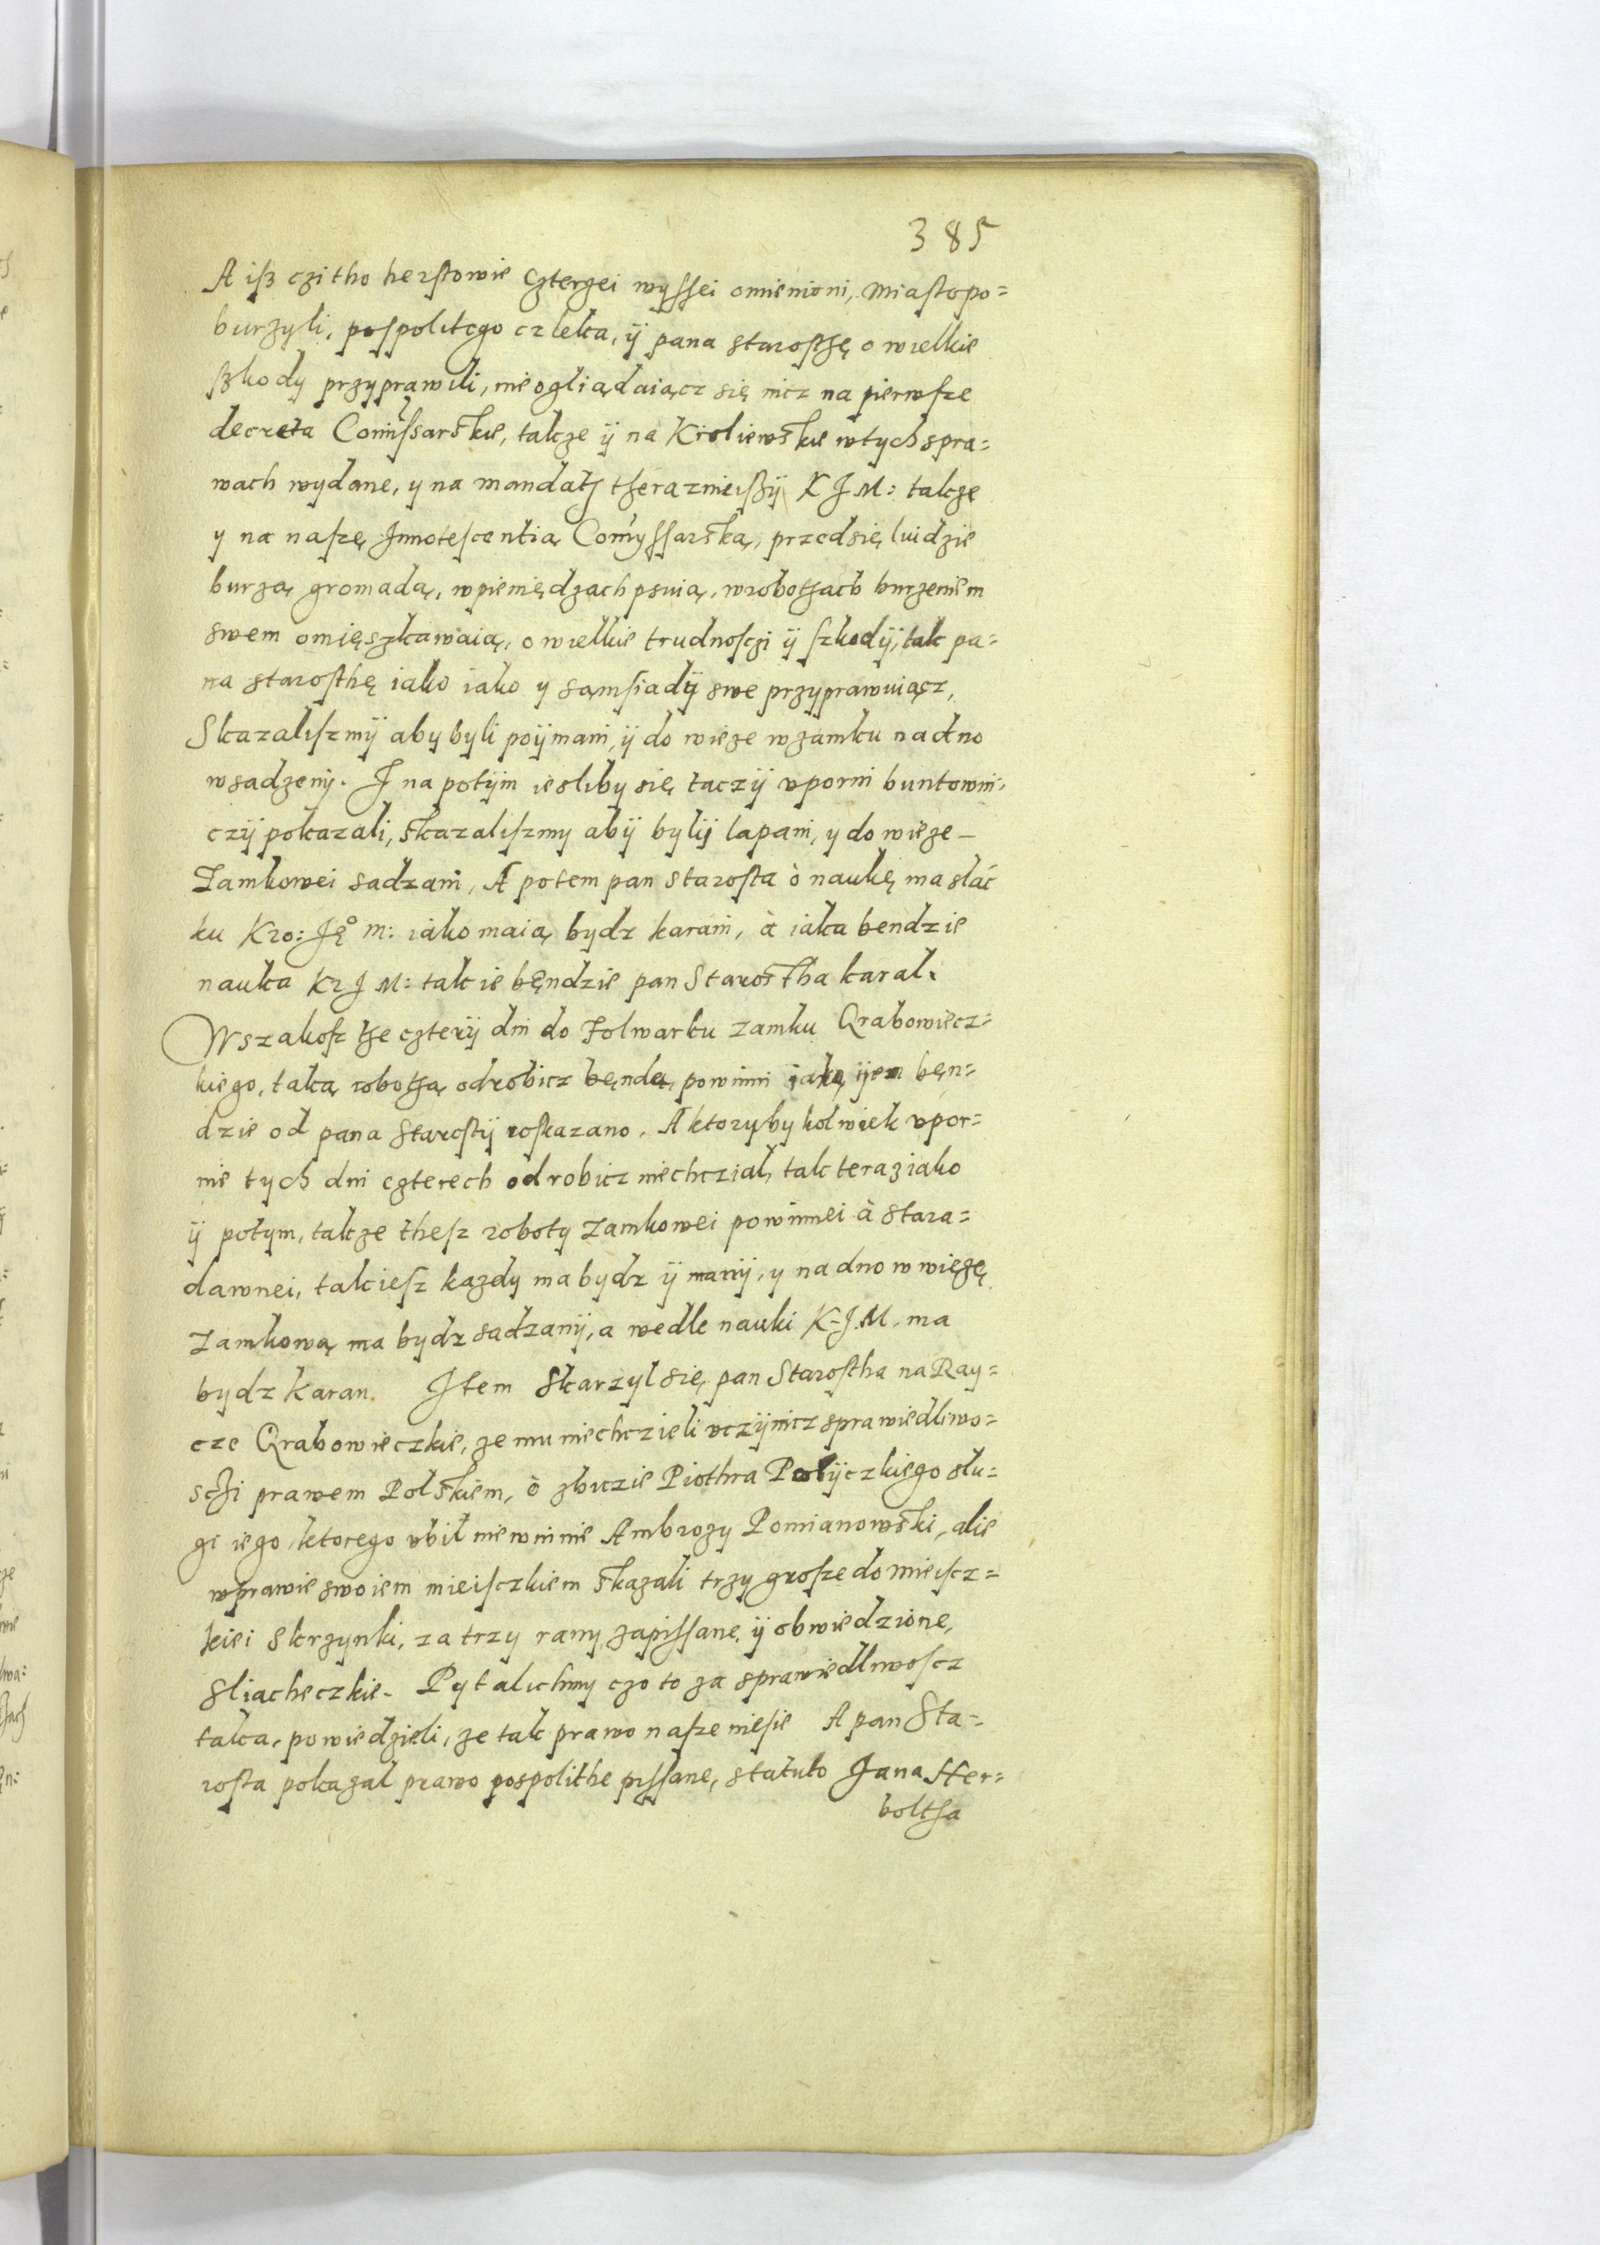 385
A isz czi tho hersztowie czterzei wyssei omienioni, miasto po=
burzyli, pospolitego czleka, ÿ pana starosthę o wielkie
szkody przyprawili, nie ogliądaiącz się nicz na pierwsze
decreta Comissarskie, takze ÿ na Kroliewskie w tych spra=
wach wydane, y na mandath therazniejszÿ K J M: takze
y na naszę Innotescentią Comyssarską, przedsię luidzie
burzą gromadą, w pieniędzach psuią, w robothach burzeniem
swem omięszkawaią, o wielkie trudnosczi ÿ szkodÿ, tak pa=
na starosthę iako iako y sąmsiadÿ swe przyprawuiącz,
Skazaliszmÿ aby byli poÿmani, ÿ do wieze w zamku na dno
wsadzeni. I na potÿm iesliby się taczÿ vporni buntowni=
czÿ pokazali, skazaliszmy abÿ bylÿ lapani, y do wieze
Zamkowei sadzani, A potem pan starosta ò naukę ma slać
ku Kro: Ję° m: iako maią bydz karani, à iaka bendzie
nauka Kr J M: tak ie bęndzie pan Starostha karal.
Wszakosz the czterÿ dni do Folwarku zamku Grabowiecz=
kiego, taką robothą odrobicz będą powinni iaką ÿem bęn=
dzie od pana Starostÿ roskazano. A ktory by kolwiek vpor=
nie tych dni czterech odrobicz niechczial, tak teraz iako
ÿ potym, takze thesz roboty zamkowei powinnei à stara=
dawnei, takiesz kazdy ma bydz ÿmanÿ, y na dno w wiezę
zamkową ma bydz sadzanÿ, a wedle nauki K. J. M. ma
bydz karan. Item Skarzyl się pan Starostha na Ray=
cze Grabowieczkie, ze mu niechczieli vczÿnicz sprawiedliwo=
sczi prawem Polskiem, ò zbiczie Piothra Polÿczkiego slu=
gi iego, ktorego vbil niewinnie Ambrozy Pomianowski, alie
w prawie swoiem mieisczkiem skazali trzy grosze do mieiscz=
kiei skrzynki, za trzy rany zapissane, ÿ obwiedzione,
sliacheczkie. Pytalichmy czo to za sprawiedliwoscz
taka, powiedzieli, ze tak prawo nasze niesie A pan Sta=
rosta pokazal prawo pospolithe pissane, statuto Jana Her=
boltha